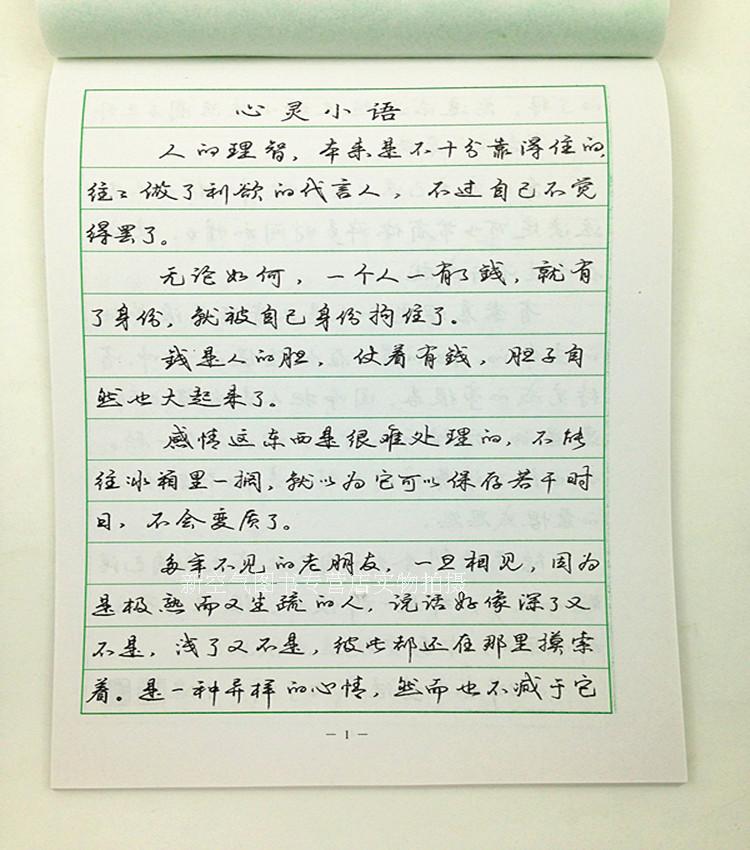 心灵小语
人的理智，本来是不十分靠得住的，
往往做了利欲的代言人，不过自己不觉
得罢了。
无论如何，一个人一有了錢，就有
了身份，就被自己身份拘住了。
錢是人的胆，仗着有錢，胆子自
然也大起来了。
感情这东西是很难处理的，不能
往冰箱里一搁，就以为它可以保存若干时
日，不会变质了。
多年不见的老朋友，一旦相见，因为
新空气图书专营店实物拍摄
是极熟而又生疏的人，说话好像深了又
不是，浅了又不是，彼此都还在那里摸索
着。是一种异样的心情，然而也不减于它
— 1 —